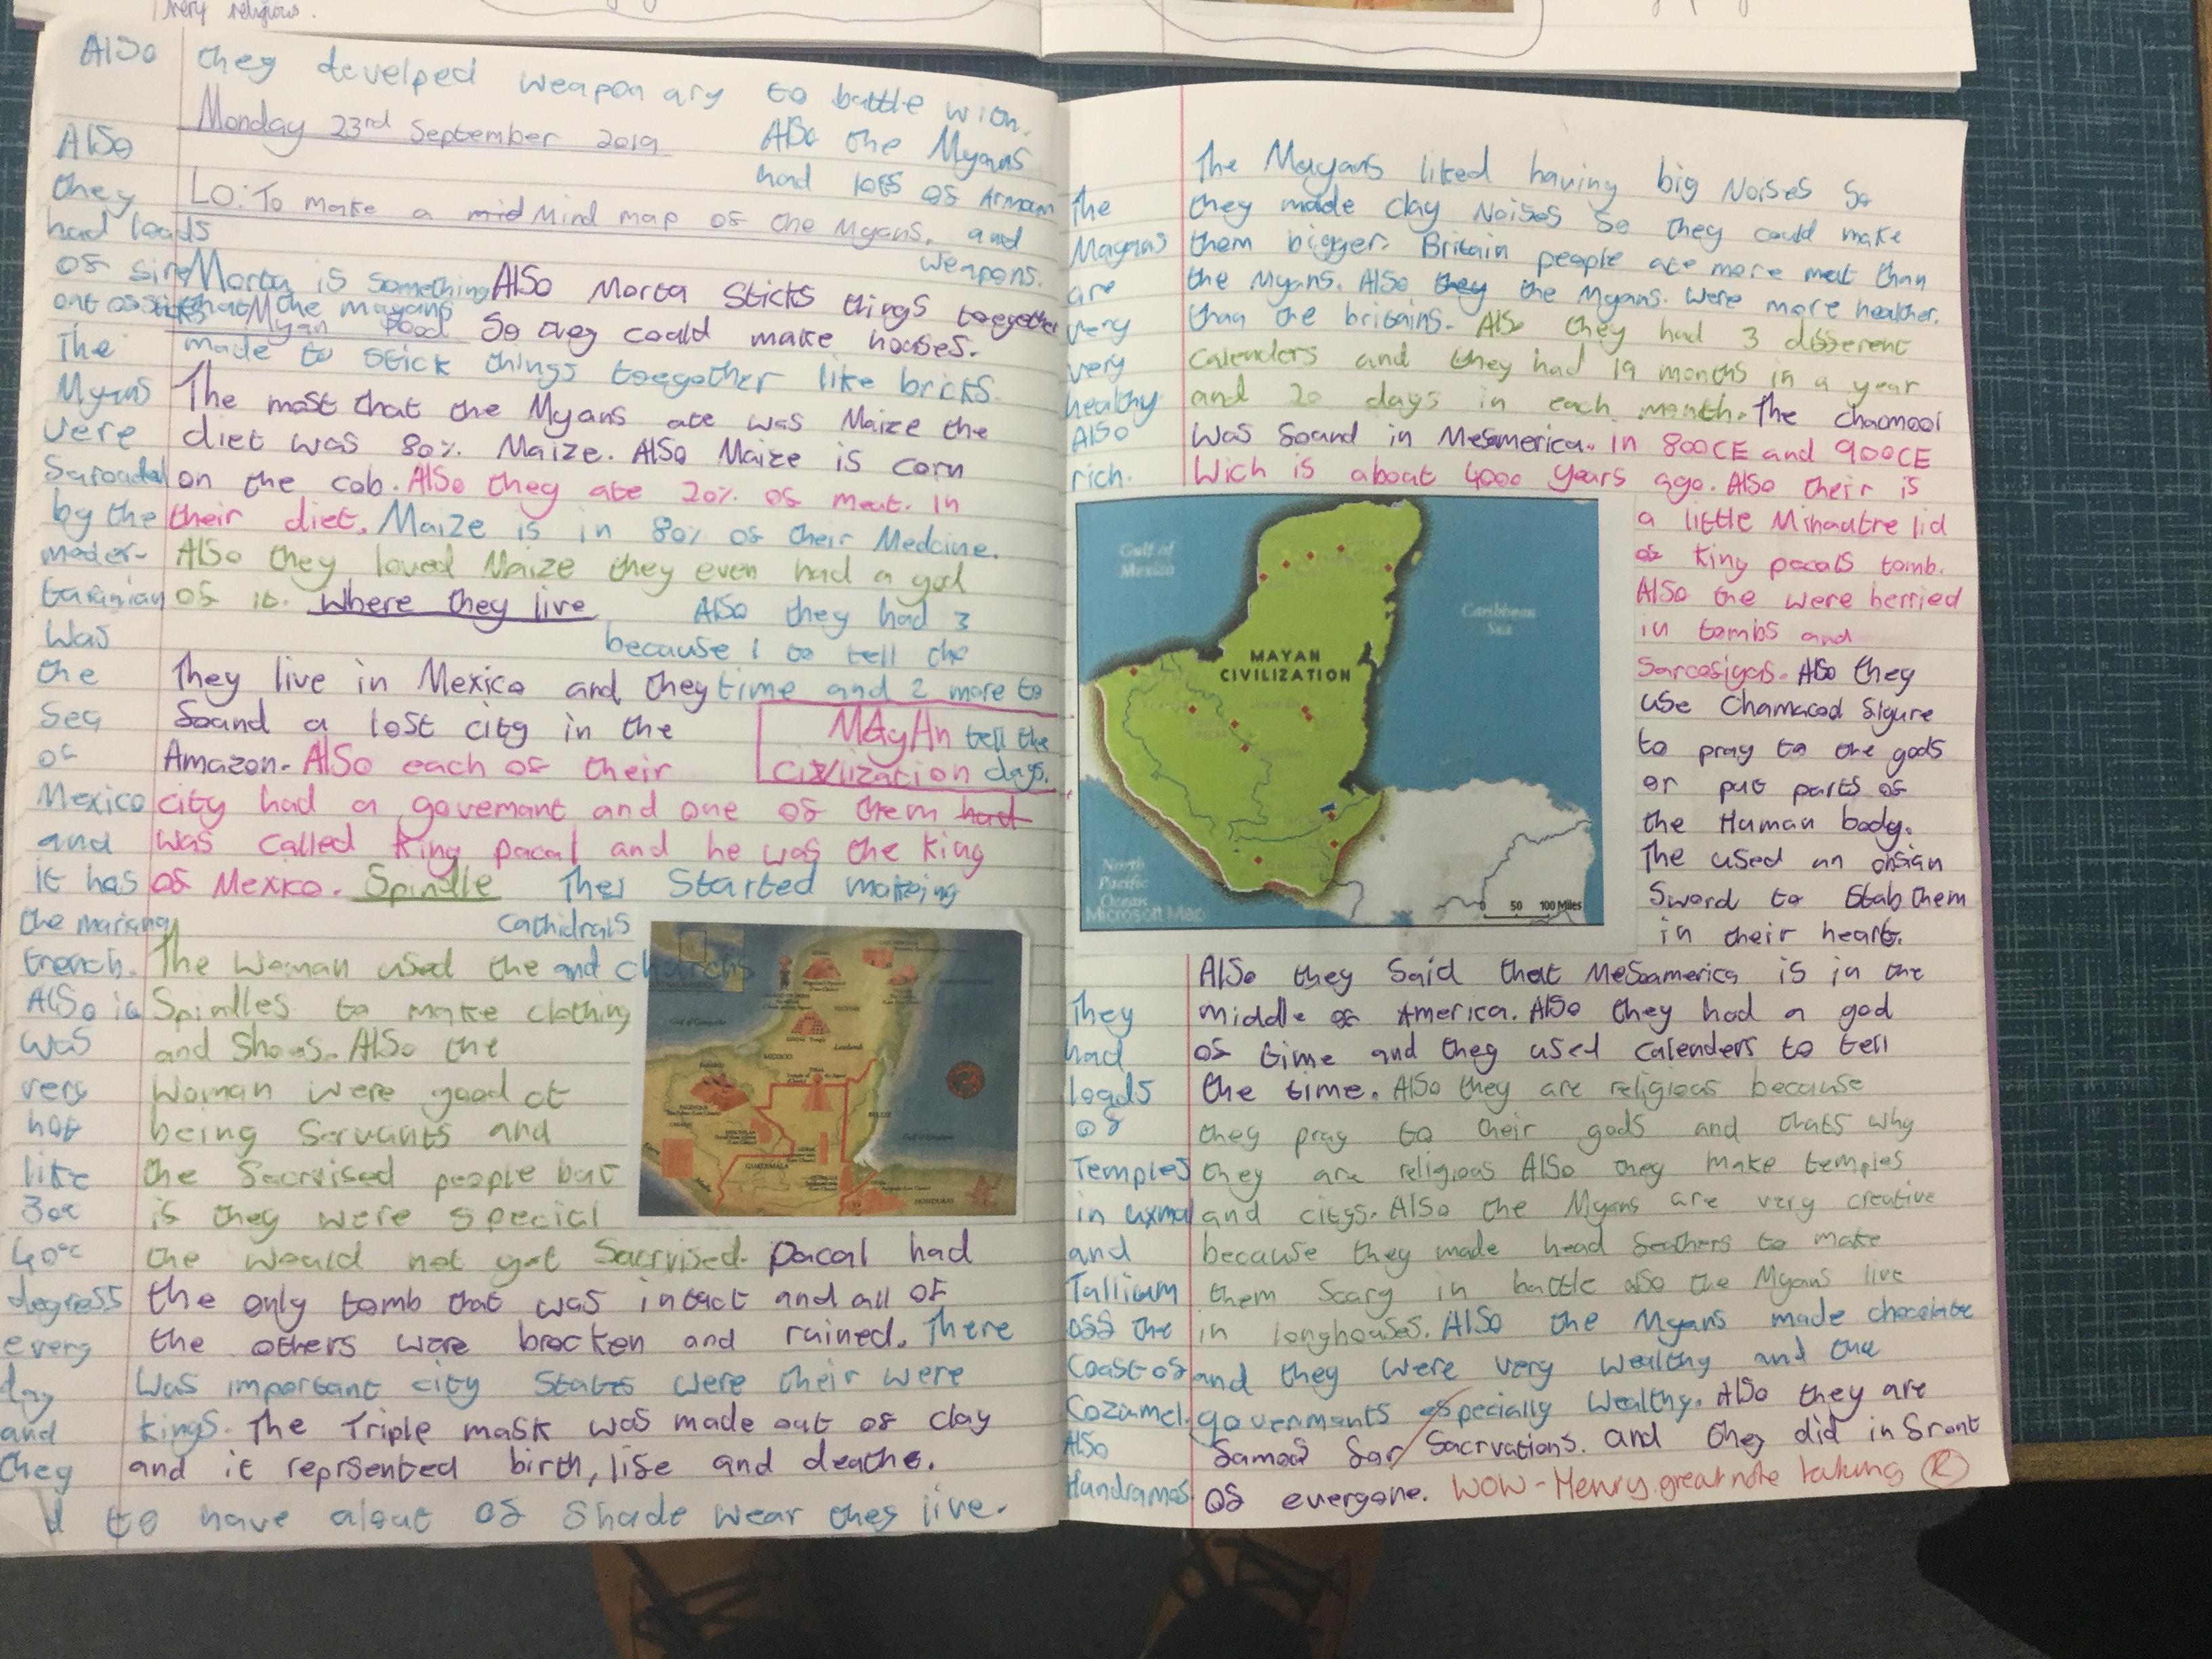 very religious.
Also they develped weapon ary to battle with.
Monday 23rd September 2019
Also the Myans
had lots of Armour
and
weapons.
LO: To make a mid Mind map of the Myans.
Morta is something
that the mayans
made to stick things toegether like bricks.
Also Morta sticks things toegether
so they could make houses.
Myan food
The most that the Myans ate was Maize the
diet was 80% Maize. Also Maize is corn
on the cob. Also they ate 20% of meat. In
their diet. Maize is in 80% of their Medcine.
Also they loved Maize they even had a god
of it.
Where they live
Also they had 3
because 1 to tell the
time and 2 more to
tell the
days.
They live in Mexico and they
found a lost city in the
Amazon. Also each of their
MAyAn
civilization
city had a govemant and one of them had
was called King pacal and he was the king
of Mexico.
Spindle
They started making
cathidrals
and churchs
The Woman used the
Spindles to make clothing
and shoes. Also the
Woman were good at
being servants and
the Sacrvised people but
if they were special
the would not get Sacrvised. Pacal had
the only tomb that was intact and all of
the others were brocken and ruined. There
was important city states were their were
kings. The Triple mask was made out of clay
and it reprsented birth, life and deathe.
Also
they
had loads
of fire
The
Myans
were
by the
the
Sea
of
Mexico
and
it has
the mariana
trench.
Also it
was
very
hot
like
30c
40°c
degress
every
day
and
they
to have alout of shade wear they live.
MEXICO
BELIZE
GUATEMALA
HONDURAS
The Mayans liked having big Noises so
they made clay Noises so they could make
them bigger. Britain people ate more meat than
the Myans. Also they the Myans. were more healther.
than the britains. Also they had 3 different
calenders and they had 19 months in a year
and 20 days in each month. The chacmool
was found in Mesamerica. in 800CE and 900CE
Wich is about 4000 years ago. Also their is
a little Minautre lid
of King pacals tomb.
Also the were berried
in tombs and
Sarcofigas. Also they
use Chamacod figure
to pray to the gods
or put parts of
the Human body.
The used an
Sword to stab them
in their heart.
The
Mayans
are
very
very
healthy
Also
rich.
Gulf of
Mexico
Caribbean
Sea
MAYAN
CIVILIZATION
North
Pacific
Ocean
Microsoft Map
0 50 100 Miles
Also they said that Mesoamerica is in the
middle of America. Also they had a god
of time and they used calenders to tell
the time. Also they are religious because
they pray to their gods and thats why
they are religious Also they make temples
and citys. Also the Myans are very creative
because they made head feathers to make
them scary in battle also the Myans live
in longhouses. Also the Myans made chocolate
and they were very wealthy and the
govenmants especially wealthy. Also they are
famos for sacrvations. and they did in front
of everyone.
They
had
loads
of
Temples
in uxmal
and
Tallium
off the
Coast of
Cozumel.
Also
WOW - Henry. great note taking R